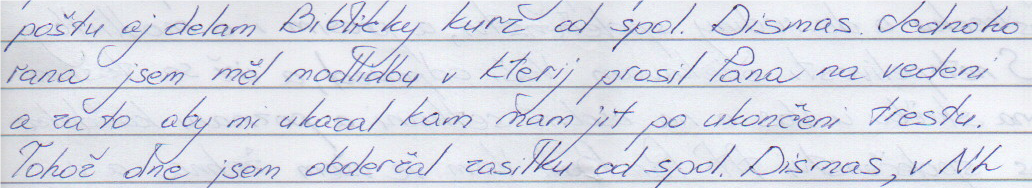 poštu aj delam Biblicky kurz od spol. Dismas. Jednoho
rana jsem měl modlidbu v kterij prosil Pana na vedeni
a za to aby mi ukazal kam mam jit po ukončeni trestu.
Tohož dne jsem obderžal zasilku od spol. Dismas, v NL